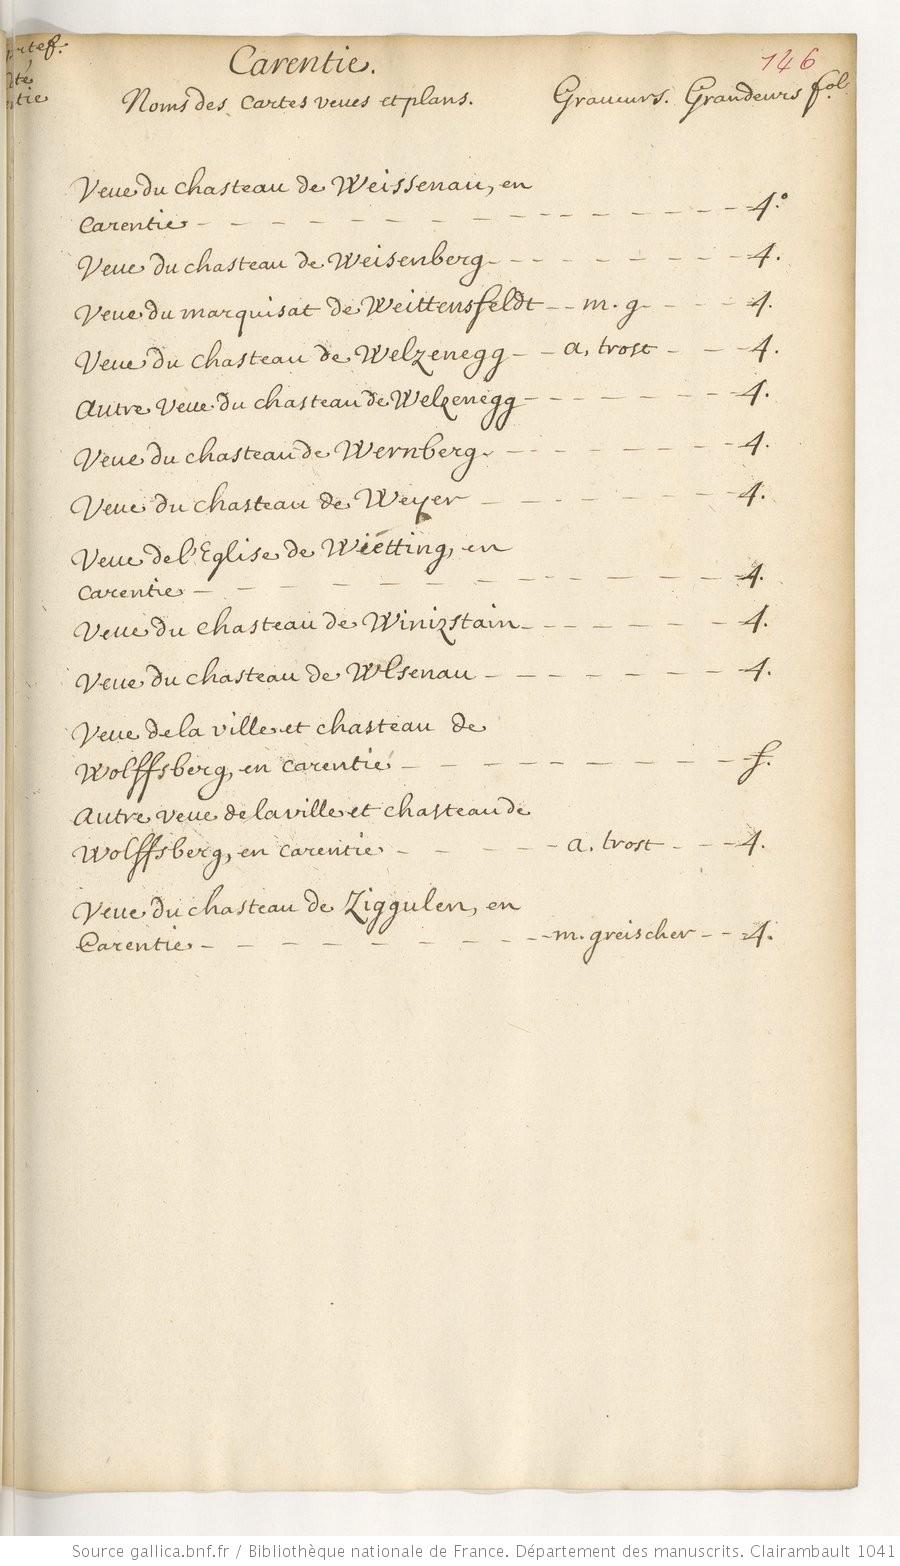 Carentie.
146
Noms des Cartes veues et plans. Graueurs. Grandeurs fol.
Veue du chasteau de Weissenau, en
Carentie - - - - - - - - - - 4.°
Veue du chasteau de Weisenberg - - - - - - 4.
Veue du marquisat de Weittensfeldt - - m. g - - - - 4.
Veue du chasteau de Welzenegg - - a. trost - - - 4.
Autre Veue du chasteau de Welzenegg - - - - - - 4.
Veue du chasteau de Wernberg. - - - - - - 4.
Veue du chasteau de Weyer - - - - - - 4.
Veue de l'Eglise de Wietting, en
Carentie - - - - - - - - - - 4.
Veue du chasteau de Winizstain - - - - - - 4.
Veue du chasteau de Wlsenau - - - - - - 4.
Veue de la ville et chasteau de
Wolffsberg, en Carentie - - - - - - - - f.
Autre veue de la ville et chasteau de
Wolffsberg, en Carentie - - - - - a. trost - - - 4.
Veue du chasteau de Ziggulen, en
Carentie - - - - - - - - m. greischer - - 4.
Source gallica.bnf.fr / Bibliothèque nationale de France. Département des manuscrits. Clairambault 1041